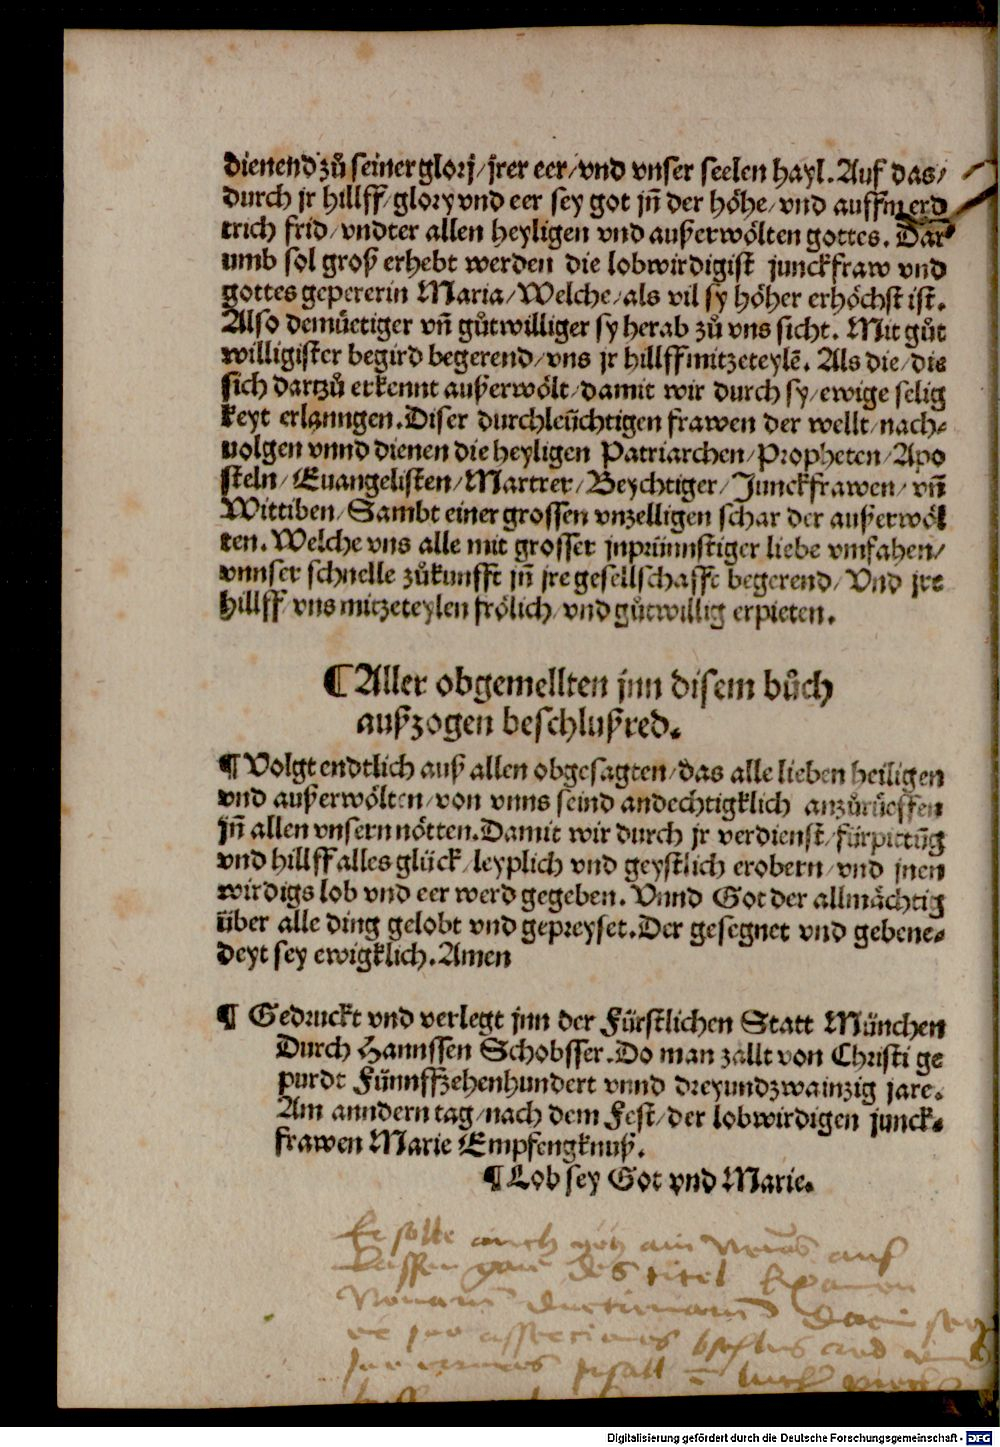 dienend zů seiner glorj/jrer eer/vnd vnser seelen hayl. Auf das/
durch jr hillff/glory vnd eer sey got jñ der höhe/vnd auffm erd
trich frid/vndter allen heyligen vnd außerwölten gottes. Dar
umb sol groß erhebt werden die lobwirdigist junckfraw vnd
gottes gepererin Maria/Welche/als vil sy höher erhöchst ist.
Also demůetiger vñ gůtwilliger sy herab zů vns sicht. Mit gůt
willigister begird begerend/vns jr hillff mitzeteylẽ. Als die/die
sich dartzů erkennt außerwölt/damit wir durch sy/ewige selig
keyt erlanngen. Diser durchleüchtigen frawen der wellt/nach⸗
uolgen vnnd dienen die heyligen Patriarchen/Propheten/Apo
steln/Euangelisten/Martrer/Beychtiger/Junckfrawen/vñ
Wittiben/Sambt einer grossen vnzelligen schar der außerwöl
ten. Welche vns alle mit grosser jnprünnstiger liebe vmfahen/
vnnser schnelle zůkunfft jñ jre gesellschafft begerend/Vnd jre
hillff/vns mitzeteylen frölich/vnd gůtwillig erpieten.
¶ Aller obgemellten jnn disem bůch
außzogen beschlußred.
¶ Volgt endtlich auß allen obgesagten/das alle lieben heiligen
vnd außerwölten/von vnns seind andechtigklich anzůrůeffen
jñ allen vnsern nötten. Damit wir durch jr verdienst/fürpittũg
vnd hillff alles glück/leyplich vnd geystlich erobern/vnd jnen
wirdigs lob vnd eer werd gegeben. Vnnd Got der allmächtig
über alle ding gelobt vnd gepreyset. Der gesegnet vnd gebene⸗
deyt sey ewigklich. Amen
¶ Gedruckt vnd verlegt jnn der Fürstlichen Statt München
Durch Hannssen Schobsser. Do man zallt von Christi ge
purdt Fünnffzehenhundert vnnd dreyundzwainzig jare.
Am anndern tag/nach dem Fest/der lobwirdigen junck⸗
frawen Marie Empfengknuß.
¶ Lob sey Got vnd Marie.
solte auch ain auf
des titel
Digitalisierung gefördert durch die Deutsche Forschungsgemeinschaft - DFG